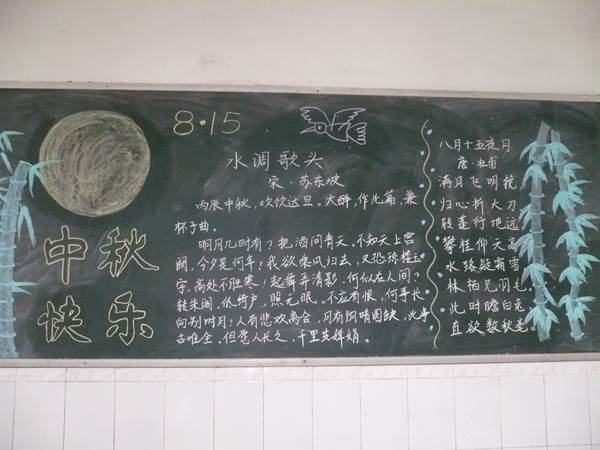 8·15
中秋
快乐
水调歌头
宋·苏东坡
丙辰中秋,欢饮达旦。大醉,作此篇,兼
怀子由。
明月几时有?把酒问青天,不知天上宫
阙,今夕是何年?我欲乘风归去,又恐琼楼玉
宇,高处不胜寒!起舞弄清影,何似在人间?
转朱阁,低绮户,照无眠。不应有恨,何事长
向别时月?人有悲欢离合,月有阴晴圆缺,此事
古难全,但愿人长久,千里共婵娟。
八月十五夜月
唐·杜甫
满月飞明镜,
归心折大刀
转蓬行地远,
攀桂仰天高
水路疑霜雪
林栖见羽毛,
此时瞻白兔
直欲数秋毫